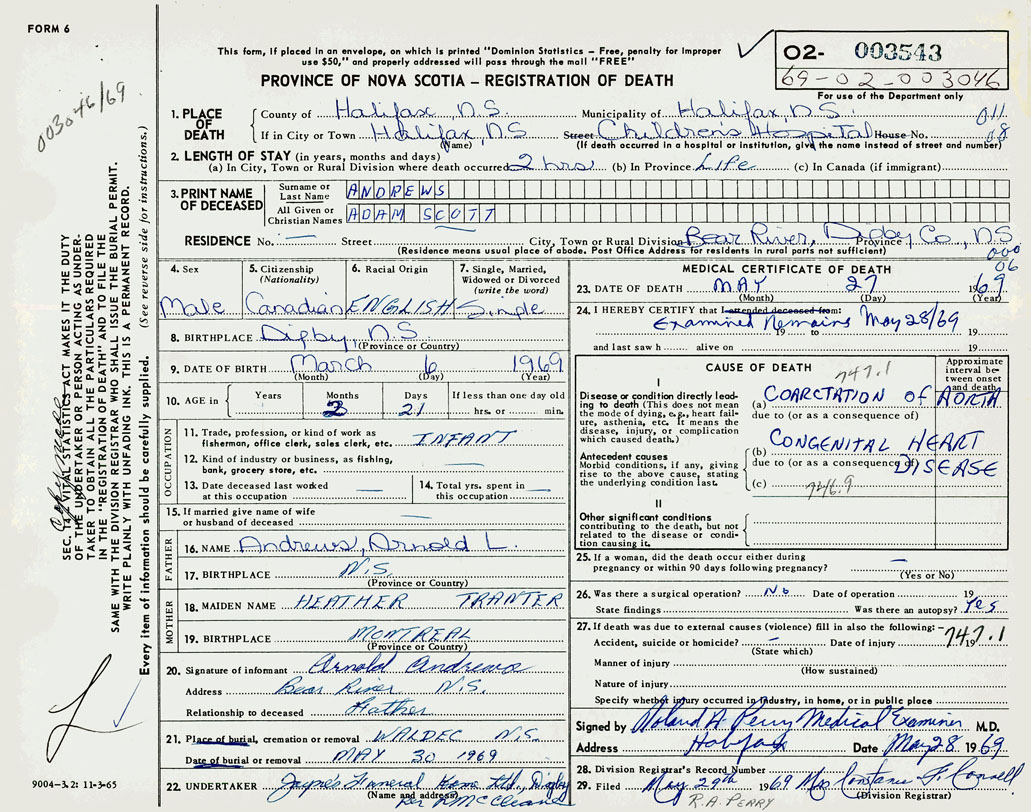 FORM 6
This form, if placed in an envelope, on which is printed "Dominion Statistics – Free, penalty for improper
use $50," and properly addressed will pass through the mail "FREE"
PROVINCE OF NOVA SCOTIA – REGISTRATION OF DEATH
02- 003543
69-02-003046
For use of the Department only
003046/69
SEC. 14 VITAL STATISTICS ACT MAKES IT THE DUTY
OF THE UNDERTAKER OR PERSON ACTING AS UNDER-
TAKER TO OBTAIN ALL THE PARTICULARS REQUIRED
IN THE "REGISTRATION OF DEATH" AND TO FILE THE
SAME WITH THE DIVISION REGISTRAR WHO SHALL ISSUE THE BURIAL PERMIT.
WRITE PLAINLY WITH UNFADING INK. THIS IS A PERMANENT RECORD.
Every item of information should be carefully supplied. (See reverse side for instructions.)
1. PLACE OF DEATH
County of Halifax, N.S. Municipality of Halifax, N.S. 011
If in City or Town Halifax, N.S. Street Children's Hospital House No. 08
(Name) (If death occurred in a hospital or institution, give the name instead of street and number)
2. LENGTH OF STAY (in years, months and days)
(a) In City, Town or Rural Division where death occurred 2 hrs (b) In Province Life (c) In Canada (if immigrant)
3. PRINT NAME OF DECEASED
Surname or Last Name ANDREWS
All Given or Christian Names ADAM SCOTT
RESIDENCE No. — Street City, Town or Rural Division Bear River, Digby Co., N.S. Province
(Residence means usual place of abode. Post Office Address for residents in rural parts not sufficient) 000
06
4. Sex
Male
5. Citizenship (Nationality)
Canadian
6. Racial Origin
ENGLISH
7. Single, Married, Widowed or Divorced (write the word)
Single
8. BIRTHPLACE Digby, N.S.
(Province or Country)
9. DATE OF BIRTH March 6 1969
(Month) (Day) (Year)
10. AGE in Years Months Days If less than one day old
2 21 hrs. or min.
OCCUPATION
11. Trade, profession, or kind of work as fisherman, office clerk, sales clerk, etc. INFANT
12. Kind of industry or business, as fishing, bank, grocery store, etc. —
13. Date deceased last worked at this occupation —
14. Total yrs. spent in this occupation —
15. If married give name of wife or husband of deceased —
FATHER
16. NAME Andrews, Arnold L.
17. BIRTHPLACE N.S.
(Province or Country)
MOTHER
18. MAIDEN NAME HEATHER TRANTER
19. BIRTHPLACE MONTREAL
(Province or Country)
20. Signature of informant Arnold Andrews
Address Bear River N.S.
Relationship to deceased Father
21. Place of burial, cremation or removal WALDEC N.S.
Date of burial or removal MAY 30 1969
22. UNDERTAKER Funeral Home Ltd, Digby
(Name and address)
9004-3.2: 11-3-65
MEDICAL CERTIFICATE OF DEATH
23. DATE OF DEATH MAY 27 1969
(Month) (Day) (Year)
24. I HEREBY CERTIFY that I attended deceased from:
Examined Remains May 28/69
19 to 19
and last saw h alive on 19
CAUSE OF DEATH
Approximate interval between onset and death
747.1
I
Disease or condition directly leading to death (This does not mean the mode of dying, e.g., heart failure, asthenia, etc. It means the disease, injury, or complication which caused death.)
(a) COARCTATION OF AORTA
due to (or as a consequence of)
Antecedent causes
Morbid conditions, if any, giving rise to the above cause, stating the underlying condition last.
(b) CONGENITAL HEART DISEASE
due to (or as a consequence of)
(c) 746.9
II
Other significant conditions contributing to the death, but not related to the disease or condition causing it.
25. If a woman, did the death occur either during pregnancy or within 90 days following pregnancy? —
(Yes or No)
26. Was there a surgical operation? No Date of operation 19
State findings Was there an autopsy? Yes
27. If death was due to external causes (violence) fill in also the following:–
Accident, suicide or homicide? – Date of injury 19 747.1
(State which)
Manner of injury
(How sustained)
Nature of injury
Specify whether injury occurred in industry, in home, or in public place
Signed by Roland A. Perry Medical Examiner M.D.
Address Halifax Date May 28 1969
28. Division Registrar's Record Number
29. Filed May 29th 1969 Mrs Constance F. Connell
(Division Registrar)
R.A. PERRY